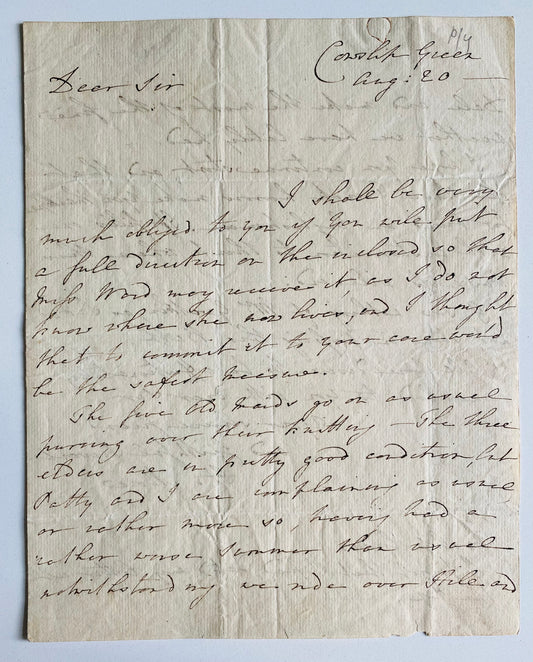 Cowslip Green
Aug: 20 —
Dear Sir
I shall be very
much obliged to you if you will put
a full direction on the inclosed so that
Miss Ward may receive it, as I do not
know where she now lives, and I thought
that to commit it to your care would
be the safest measure.
The five old maids go on as usual
purring over their knitting — The three
elders are in pretty good condition, but
Patty and I are complaining as usual
or rather more so, having had a
rather worse summer than usual
notwithstanding we ride over Hile and